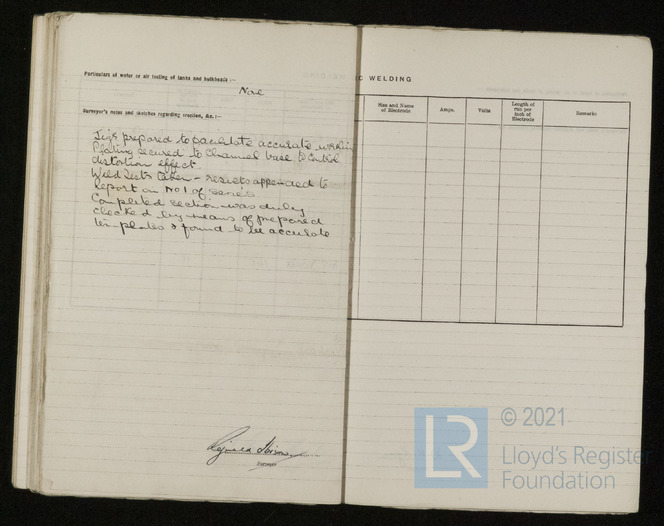 Particulars of water or air testing of tanks and bulkheads :—
Surveyor's notes and sketches regarding erection, &c. :—
Jigs prepared to facilitate accurate welding
Plating secured to channel base to control
distortion effect.
Weld tests taken - results appended to
Report on No 1 of series
Completed section was duly
checked by means of prepared
templates & found to be accurate
Reginald
Surveyor
IC WELDING
Size and Name
of Electrode
Amps.
Volts
Length of
run per
inch of
Electrode
Remarks
© 2021
LR
Lloyd's Register
Foundation